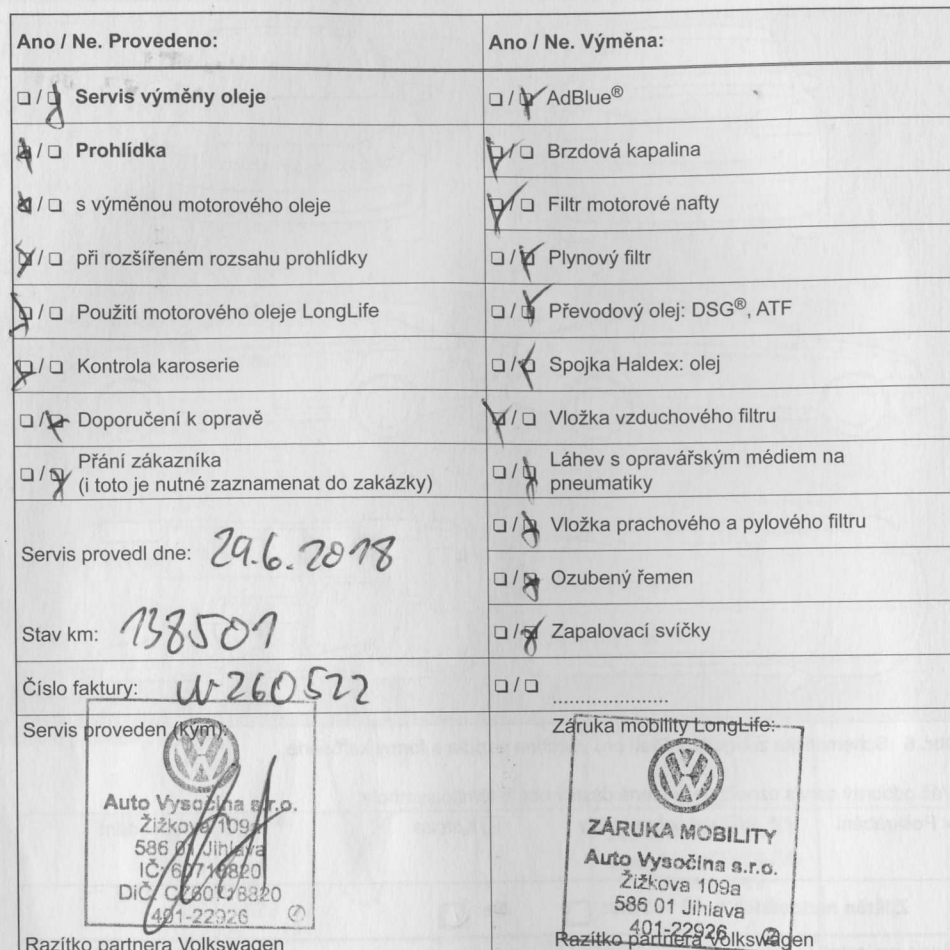 Ano / Ne. Provedeno:
☐ / ☒ Servis výměny oleje
☒ / ☐ Prohlídka
☒ / ☐ s výměnou motorového oleje
☒ / ☐ při rozšířeném rozsahu prohlídky
☒ / ☐ Použití motorového oleje LongLife
☒ / ☐ Kontrola karoserie
☐ / ☒ Doporučení k opravě
☐ / ☒ Přání zákazníka
(i toto je nutné zaznamenat do zakázky)
Servis provedl dne: 29.6.2018
Stav km: 138501
Číslo faktury: W260522
Servis proveden (kým):
Auto Vysočina s.r.o.
Žižkova 109a
586 01 Jihlava
IČ: 60718820
DIČ: CZ60718820
401-22926
Razítko partnera Volkswagen
Ano / Ne. Výměna:
☐ / ☒ AdBlue®
☒ / ☐ Brzdová kapalina
☒ / ☐ Filtr motorové nafty
☐ / ☒ Plynový filtr
☐ / ☒ Převodový olej: DSG®, ATF
☐ / ☒ Spojka Haldex: olej
☒ / ☐ Vložka vzduchového filtru
☐ / ☒ Láhev s opravářským médiem na
pneumatiky
☐ / ☒ Vložka prachového a pylového filtru
☐ / ☒ Ozubený řemen
☐ / ☒ Zapalovací svíčky
☐ / ☐ ......................
Záruka mobility LongLife:
ZÁRUKA MOBILITY
Auto Vysočina s.r.o.
Žižkova 109a
586 01 Jihlava
401-22926
Razítko partnera Volkswagen